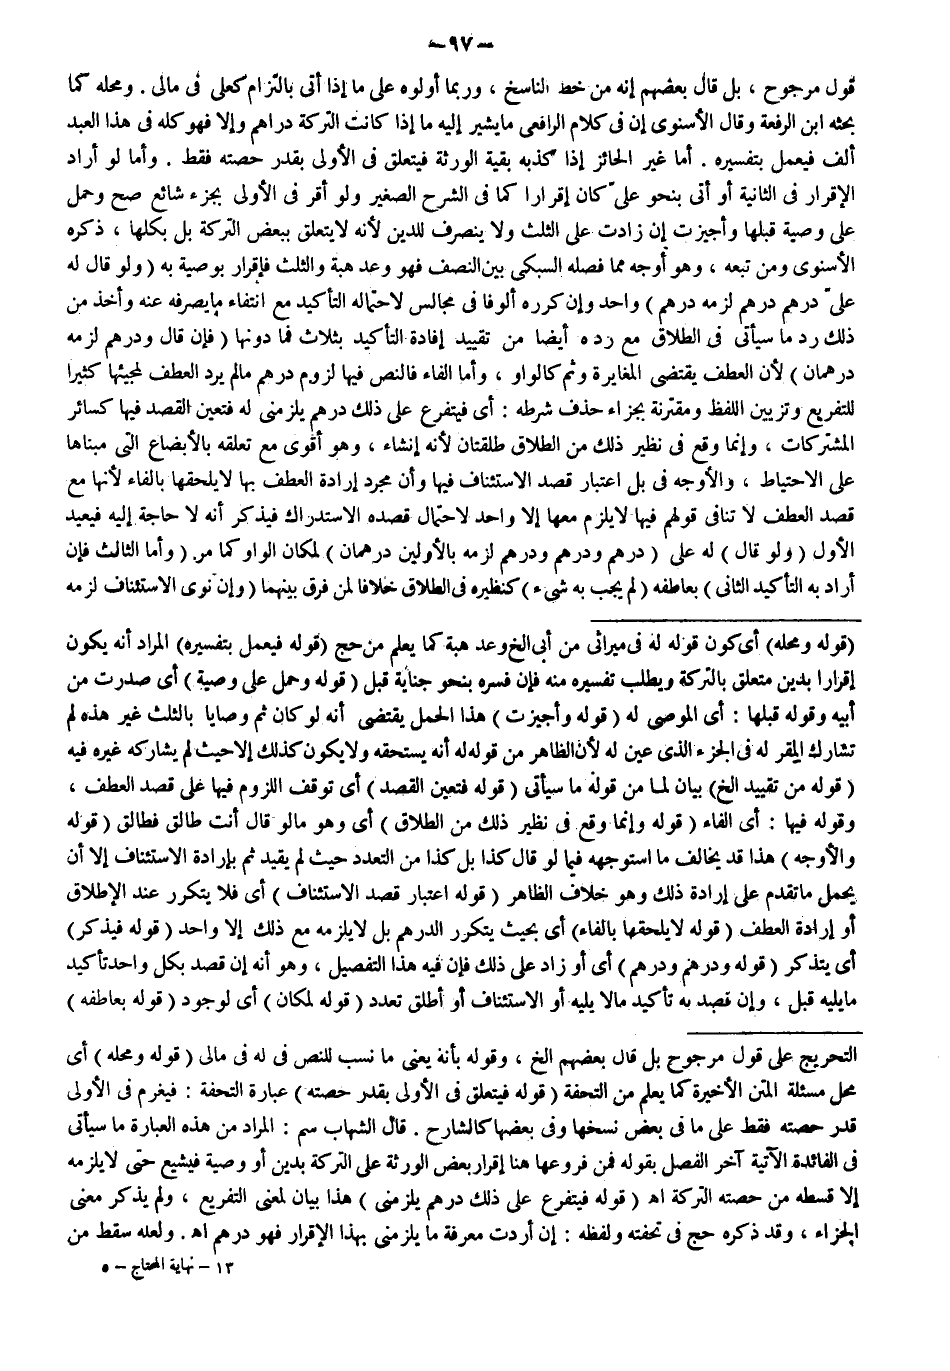 -٩٧-
قول مرجوح ، بل قال بعضهم إنه من خط الناسخ ، وربما أولوه على ما إذا أتى بالتزام كعلى فى مالى . ومحله كما
بحثه ابن الرفعة وقال الأسنوى إن فى كلام الرافعى مايشير إليه ما إذا كانت التركة دراهم وإلا فهو كله فى هذا العبد
ألف فيعمل بتفسيره . أما غير الحائز إذا كذبه بقية الورثة فيتعلق فى الأولى بقدر حصته فقط . وأما لو أراد
الإقرار فى الثانية أو أتى بنحو علىّ كان إقرارا كما فى الشرح الصغير ولو أقر فى الأولى بجزء شائع صح وحمل
على وصية قبلها وأجيزت إن زادت على الثلث ولا ينصرف للدين لأنه لايتعلق ببعض التركة بل بكلها ، ذكره
الأسنوى ومن تبعه ، وهو أوجه مما فصله السبكى بين النصف فهو وعد هبة والثلث فإقرار بوصية به ( ولو قال له
علىّ درهم درهم لزمه درهم ) واحد وإن كرره ألوفا فى مجالس لاحتماله التأكيد مع انتفاء مايصرفه عنه وأخذ من
ذلك رد ما سيأتى فى الطلاق مع رده أيضا من تقييد إفادة التأكيد بثلاث فما دونها ( فإن قال ودرهم لزمه
درهمان ) لأن العطف يقتضى المغايرة وثم كالواو ، وأما الفاء فالنص فيها لزوم درهم مالم يرد العطف لمجيئها كثيرا
للتفريع وتزيين اللفظ ومقترنة بجزاء حذف شرطه : أى فيتفرع على ذلك درهم يلزمنى له فتعين القصد فيها كسائر
المشتركات ، وإنما وقع فى نظير ذلك من الطلاق طلقتان لأنه إنشاء ، وهو أقوى مع تعلقه بالأبضاع التى مبناها
على الاحتياط ، والأوجه فى بل اعتبار قصد الاستئناف فيها وأن مجرد إرادة العطف بها لايلحقها بالفاء لأنها مع
قصد العطف لا تنافى قولهم فيها لايلزم معها إلا واحد لاحتمال قصده الاستدراك فيذكر أنه لا حاجة إليه فيعيد
الأول ( ولو قال ) له على ( درهم ودرهم ودرهم لزمه بالأولين درهمان ) لمكان الواو كما مر. ( وأما الثالث فإن
أراد به التأكيد الثانى ) بعاطفه ( لم يجب به شىء ) كنظيره فى الطلاق خلافا لمن فرق بينهما ( وإن نوى الاستئناف لزمه
(قوله ومحله) أى كون قوله له فى ميراثى من أبى الخ وعد هبة كما يعلم من حج (قوله فيعمل بتفسيره) المراد أنه يكون
إقرارا بدين متعلق بالتركة ويطلب تفسيره منه فإن فسره بنحو جناية قبل ( قوله وحمل على وصية ) أى صدرت من
أبيه وقوله قبلها : أى الموصى له ( قوله وأجيزت ) هذا الحمل يقتضى أنه لو كان ثم وصايا بالثلث غير هذه لم
تشارك المقر له فى الجزء الذى عين له لأن الظاهر من قوله له أنه يستحقه ولا يكون كذلك إلا حيث لم يشاركه غيره فيه
( قوله من تقييد الخ) بيان لما من قوله ما سيأتى ( قوله فتعين القصد ) أى توقف اللزوم فيها على قصد العطف ،
وقوله فيها : أى الفاء ( قوله وإنما وقع فى نظير ذلك من الطلاق ) أى وهو مالو قال أنت طالق فطالق ( قوله
والأوجه ) هذا قد يخالف ما استوجهه فيما لو قال كذا بل كذا من التعدد حيث لم يقيد ثم بإرادة الاستئناف إلا أن
يحمل ماتقدم على إرادة ذلك وهو خلاف الظاهر ( قوله اعتبار قصد الاستئناف ) أى فلا يتكرر عند الإطلاق
أو إرادة العطف ( قوله لايلحقها بالفاء) أى بحيث يتكرر الدرهم بل لايلزمه مع ذلك إلا واحد ( قوله فيذكر)
أى يتذكر ( قوله ودرهم ودرهم ) أى أو زاد على ذلك فإن فيه هذا التفصيل ، وهو أنه إن قصد بكل واحد تأكيد
مايليه قبل ، وإن قصد به تأكيد مالا يليه أو الاستئناف أو أطلق تعدد ( قوله لمكان ) أى لوجود ( قوله بعاطفه )
التخريج على قول مرجوح بل قال بعضهم الخ ، وقوله بأنة يعنى ما نسب للنص فى له فى مالى ( قوله ومحله ) أى
محل مسئلة المتن الأخيرة كما يعلم من التحفة ( قوله فيتعلق فى الأولى بقدر حصته ) عبارة التحفة : فيغرم فى الأولى
قدر حصته فقط على ما فى بعض نسخها وفى بعضها كالشارح . قال الشهاب سم : المراد من هذه العبارة ما سيأتى
فى الفائدة الآتية آخر الفصل بقوله فمن فروعها هنا إقرار بعض الورثة على التركة بدين أو وصية فيشيع حتى لايلزمه
إلا قسطه من حصته التركة اه ( قوله فيتفرع على ذلك درهم يلزمنى ) هذا بيان لمعنى التفريع ، ولم يذكر معنى
الجزاء ، وقد ذكره حج فى تحفته ولفظه : إن أردت معرفة ما يلزمنى بهذا الإقرار فهو درهم اه . ولعله سقط من
١٣ - نهاية المحتاج - ٥